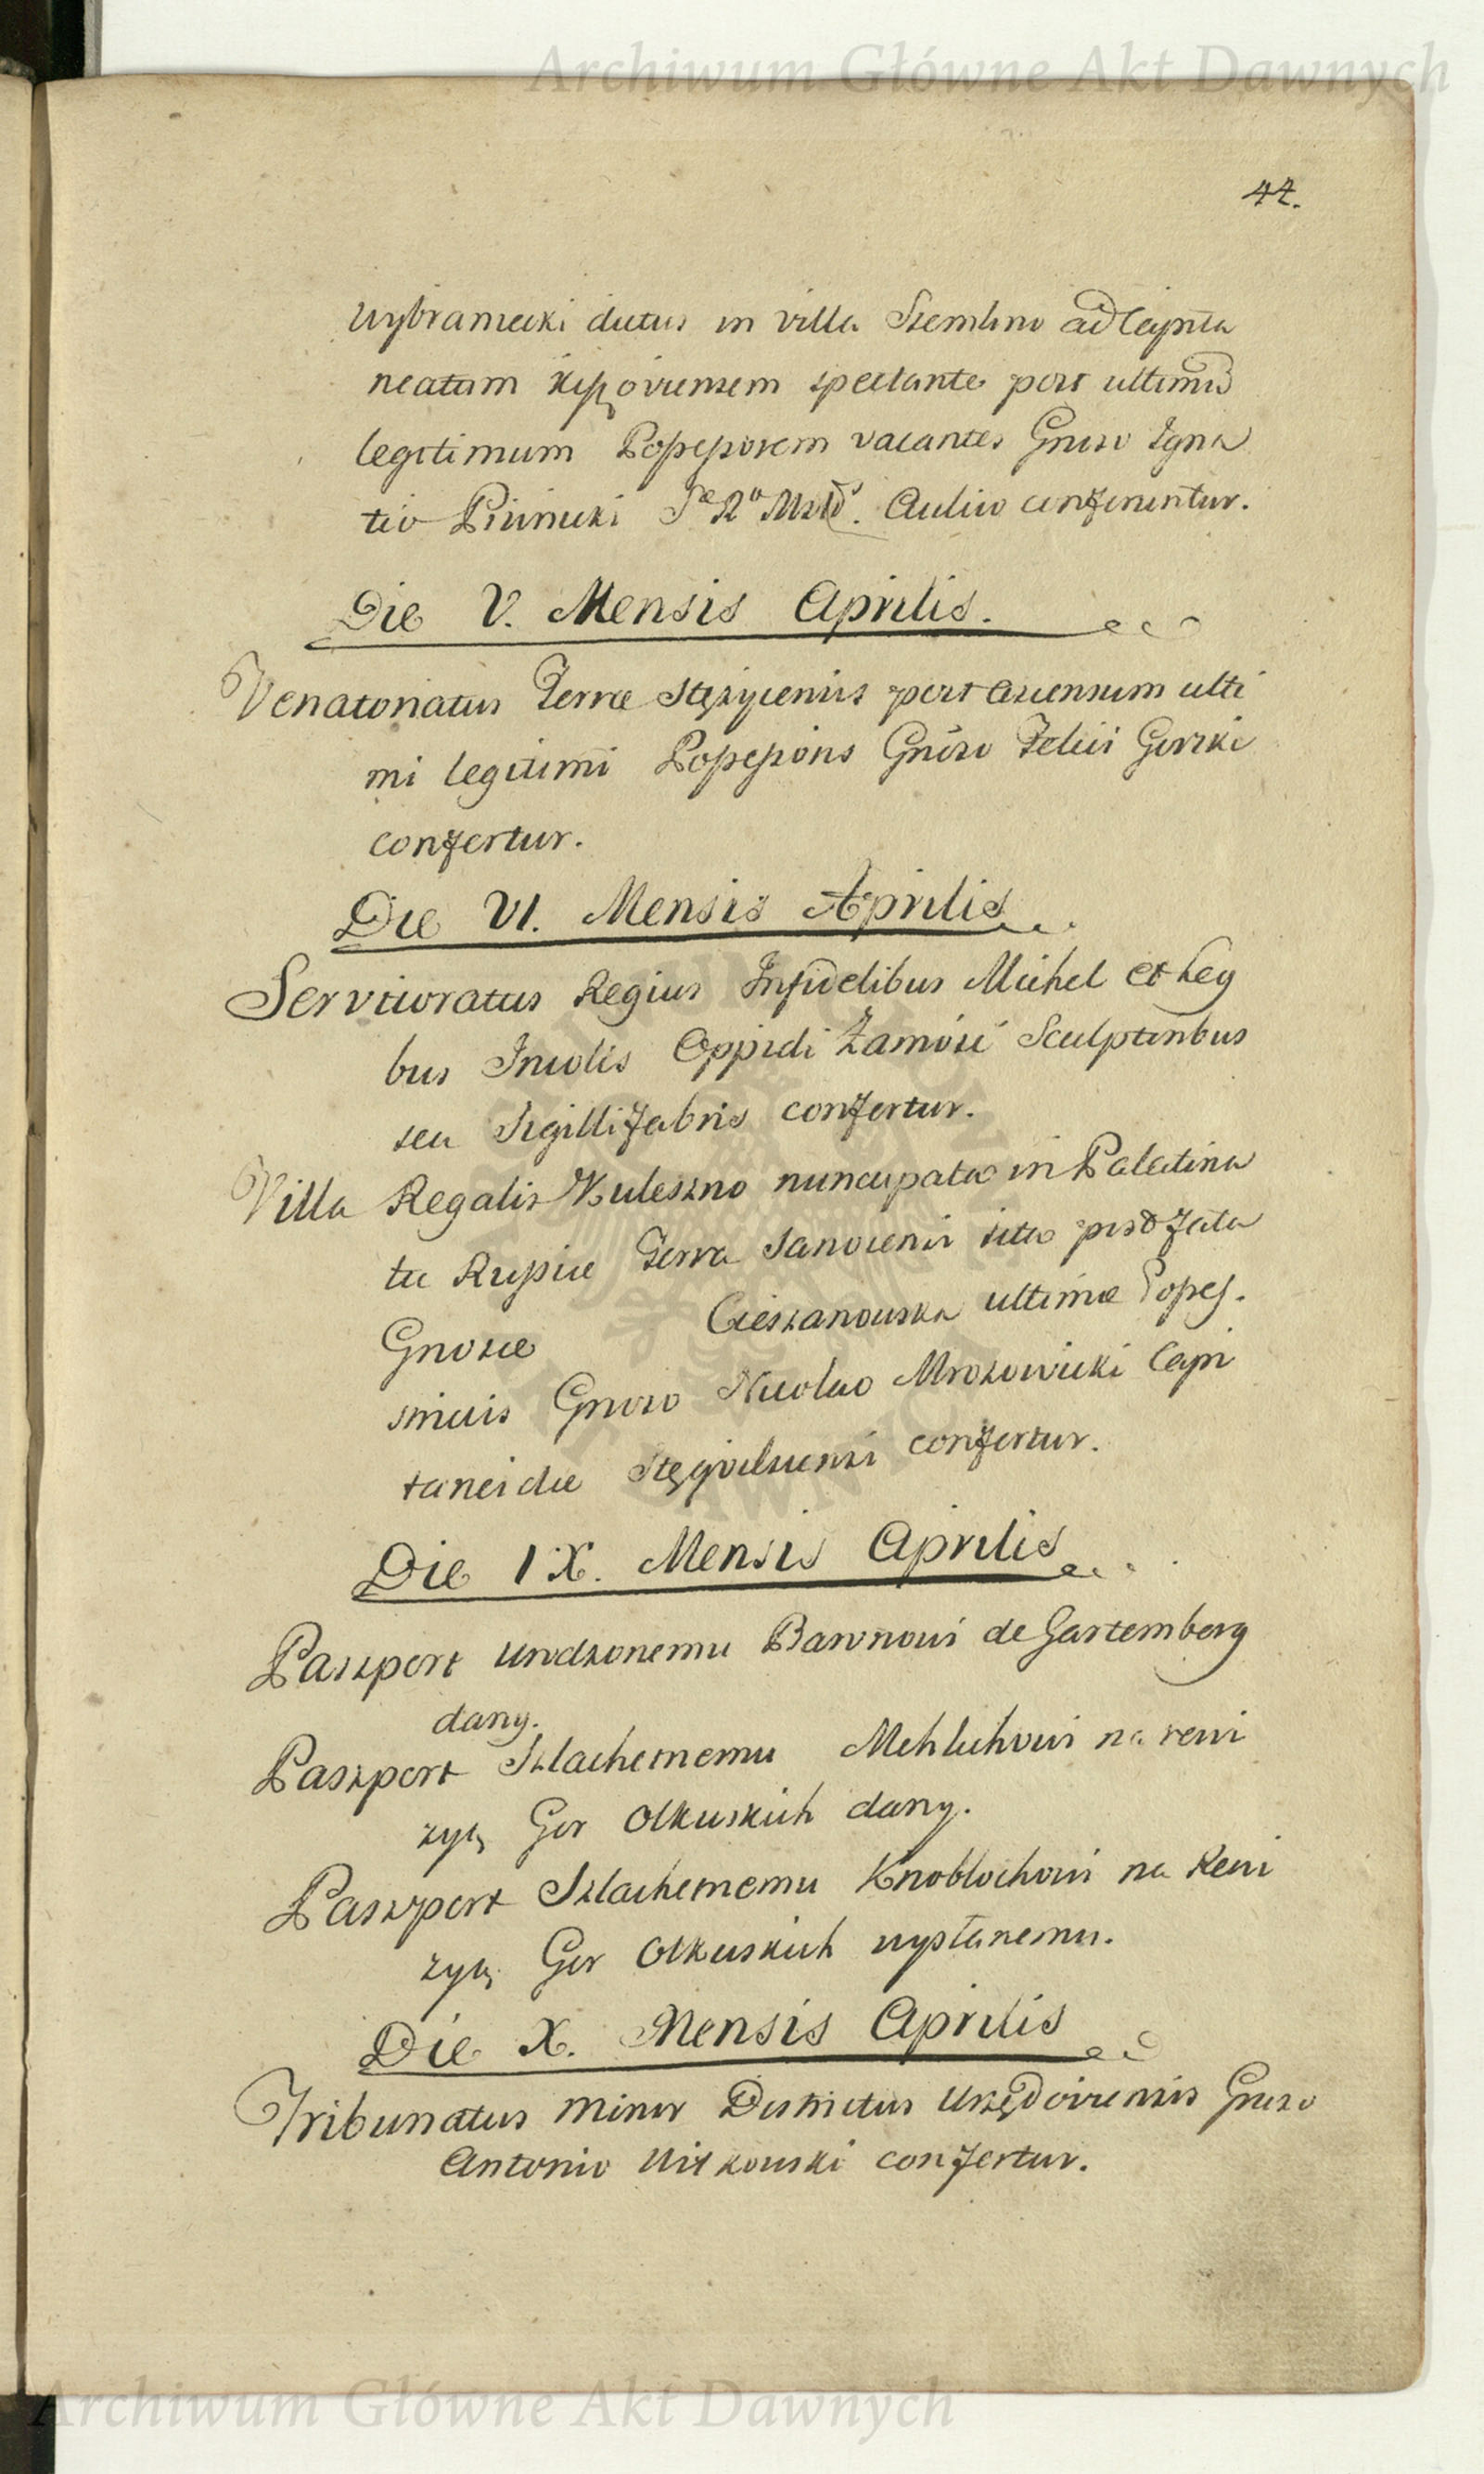 Archiwum Główne Akt Dawnych
42.
Wybraniecki dictus in villa Szemlino ad Capita
neatum spectante post ultimu
legitimum Possessorem vacantes Gnoso Igna
tio Aulico conferuntur.
Die V. Mensis Aprilis.
Venatoriatus Terræ Stężycensis post ascensum ulti
mi legitimi Possessoris Gnoso Felici Gorski
confertur.
Die VI. Mensis Aprilis
Servitoratus Regius Infidelibus Michel et Ley
bus Incolis Oppidi Zamość Sculptoribus
seu Sigillifabris confertur.
Villa Regalis Kuleszno nuncupata in Palatina
tu Russiæ Terra Sanocensi sita post fata
Gnosæ Cieszanowska ultimæ Posses.
sricis Gnoso Nicolao Mrozowicki Capi
taneidæ Stęgvilscensi confertur.
Die IX. Mensis Aprilis
Paszport Urodzonemu Baronowi de Gartemberg
dany.
Paszport Szlachetnemu Mehlichowi na rewi
zyą Gor Olkuskich dany.
Paszport Szlachetnemu Knoblochowi na Rewi
zyą Gor Olkuskich wysłanemu.
Die X. Mensis Aprilis
Tribunatus Minor Districtus Urzędoviensis Gnoso
Antonio Witkowski confertur.
Archiwum Główne Akt Dawnych